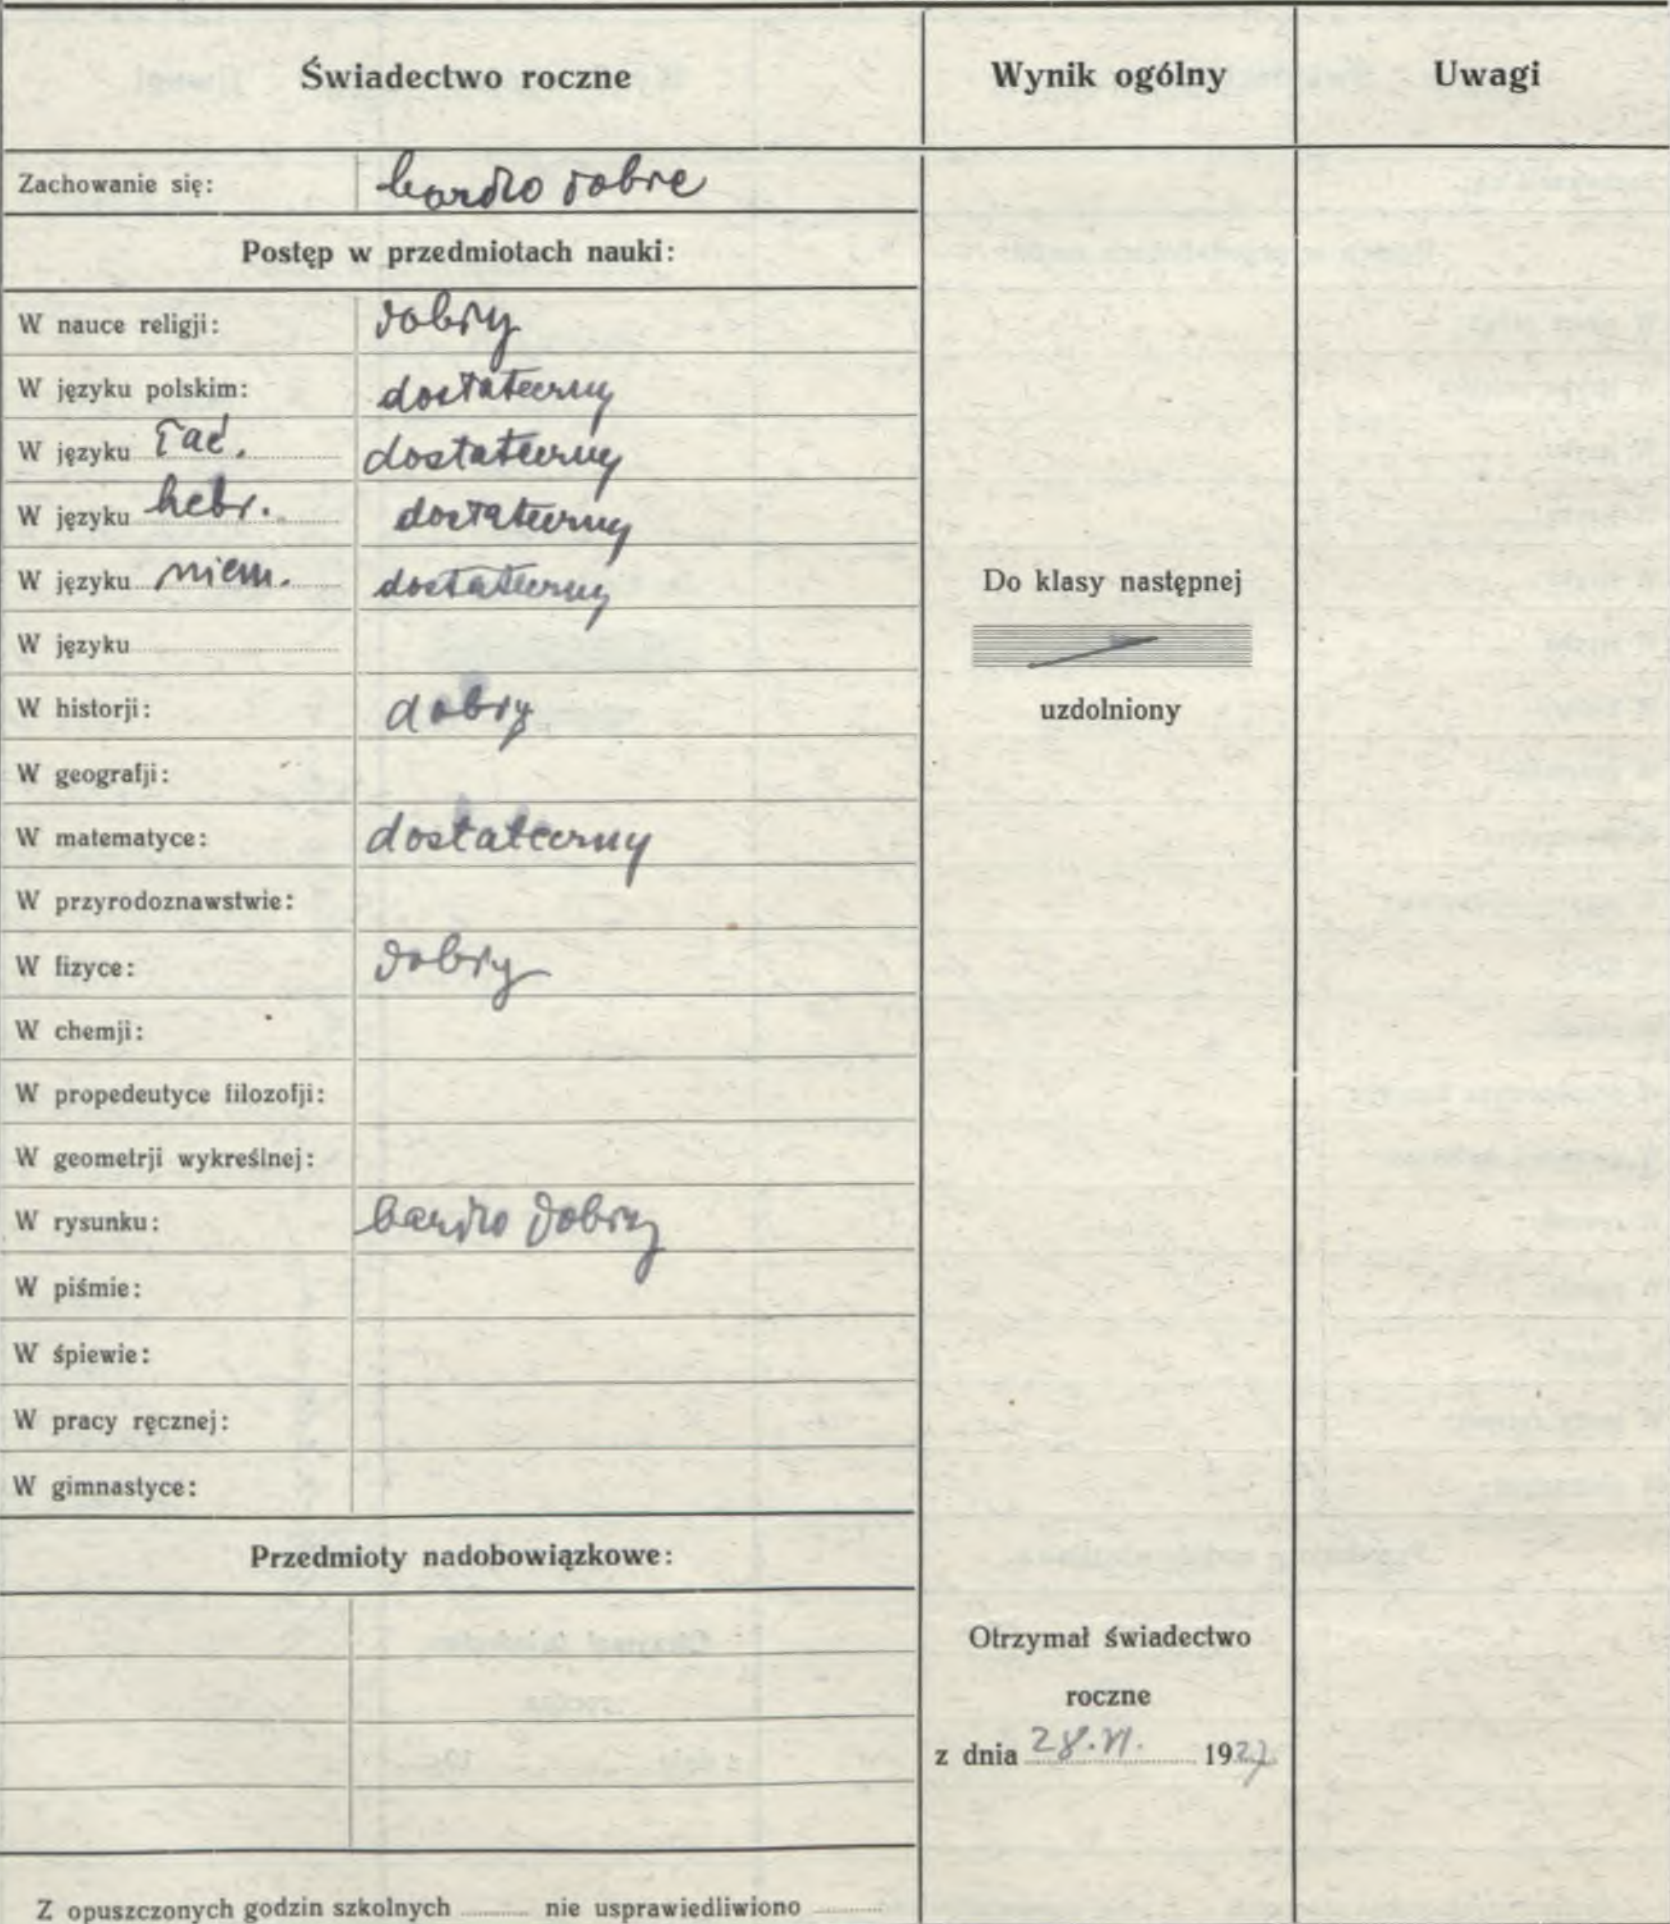 Świadectwo roczne Wynik ogólny Uwagi
Zachowanie się: bardzo dobre
Postęp w przedmiotach nauki:
W nauce religji: dobry
W języku polskim: dostateczny
W języku łać. dostateczny
W języku hebr. dostateczny
W języku niem. dostateczny
Do klasy następnej
W języku
W historji: dobry
uzdolniony
W geografji:
W matematyce: dostateczny
W przyrodoznawstwie:
W fizyce: dobry
W chemji:
W propedeutyce filozofji:
W geometrji wykreślnej:
W rysunku: bardzo dobry
W piśmie:
W śpiewie:
W pracy ręcznej:
W gimnastyce:
Przedmioty nadobowiązkowe:
Otrzymał świadectwo
roczne
z dnia 28.VI. 1927
Z opuszczonych godzin szkolnych nie usprawiedliwiono